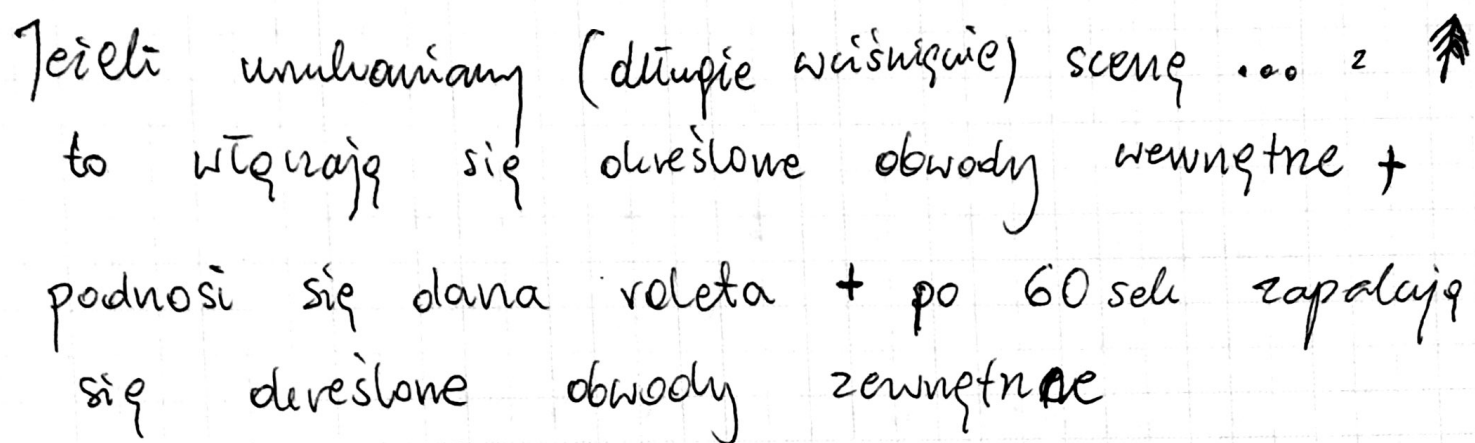 Jeżeli uruchamiamy (długie wciśnięcie) scenę ... z ⇑
to włączają się określone obwody wewnętrzne +
podnosi się dana roleta + po 60 sek zapalają
się określone obwody zewnętrzne